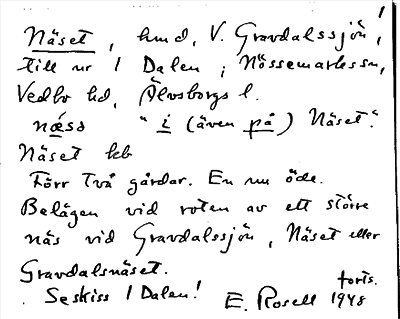 1
Näset, hmd, V. Gravdalssjön,
till nr 1 Dalen i Nössemarks sn,
Vedbo hd, Älvsborgs l.
næss "i (även på) Näset".
Näset kb
Förr två gårdar. En nu öde.
Belägen vid roten av ett större
näs vid Gravdalssjön, Näset eller
Gravdalsnäset.
forts.
Se skiss 1 Dalen! E. Rosell 1948